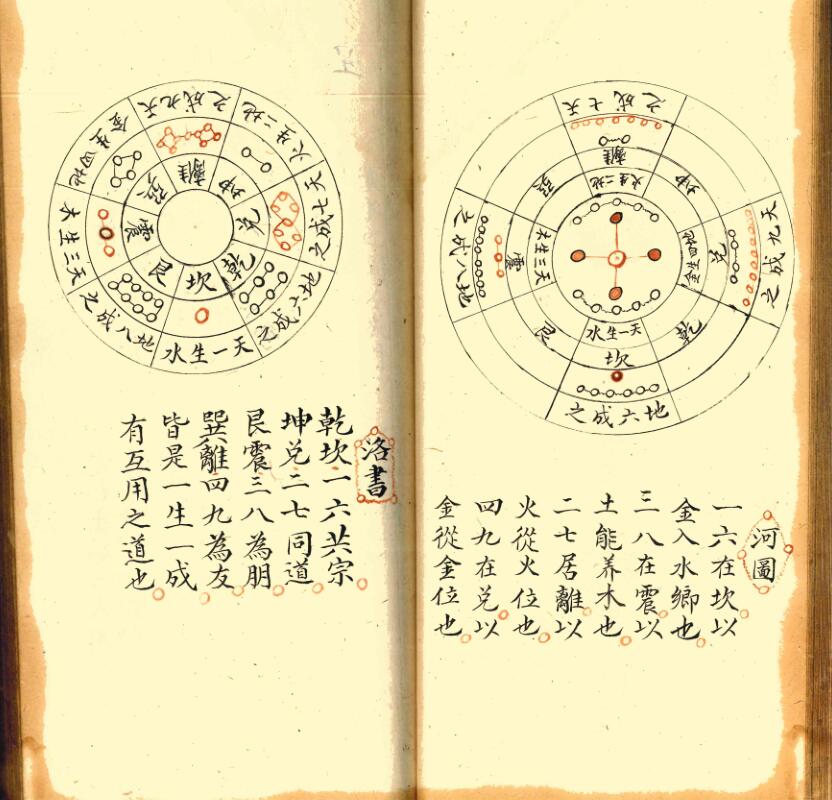 天七成之
地二生火
離
坤
天九成之
地四生金
兑
乾
地六成之
天一生水
坎
艮
地八成之
天三生木
震
巽
河圖
一六在坎以
金入水鄉也
三八在震以
土能养木也
二七居離以
火從火位也
四九在兑以
金從金位也
天九成之
離
地二生火
坤
天七成之
兑
地六成之
乾
天一生水
坎
地八成之
艮
天三生木
震
地四生金
巽
洛書
乾坎一六共宗
坤兑二七同道
艮震三八為朋
巽離四九為友
皆是一生一成
有互用之道也